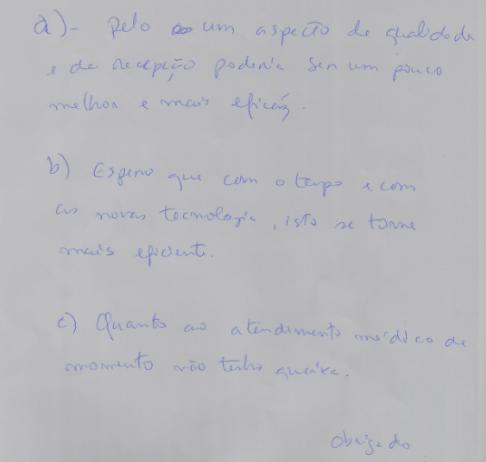 a) - Pelo um aspecto de qualidade
e de recepção poderia ser um pouco
melhor e mais eficáz.
b) Espero que com o tempo e com
as novas tecnologia, isto se torne
mais eficient.
c) Quanto ao atendimento médico de
momento não tenho queixa.
Obrigado